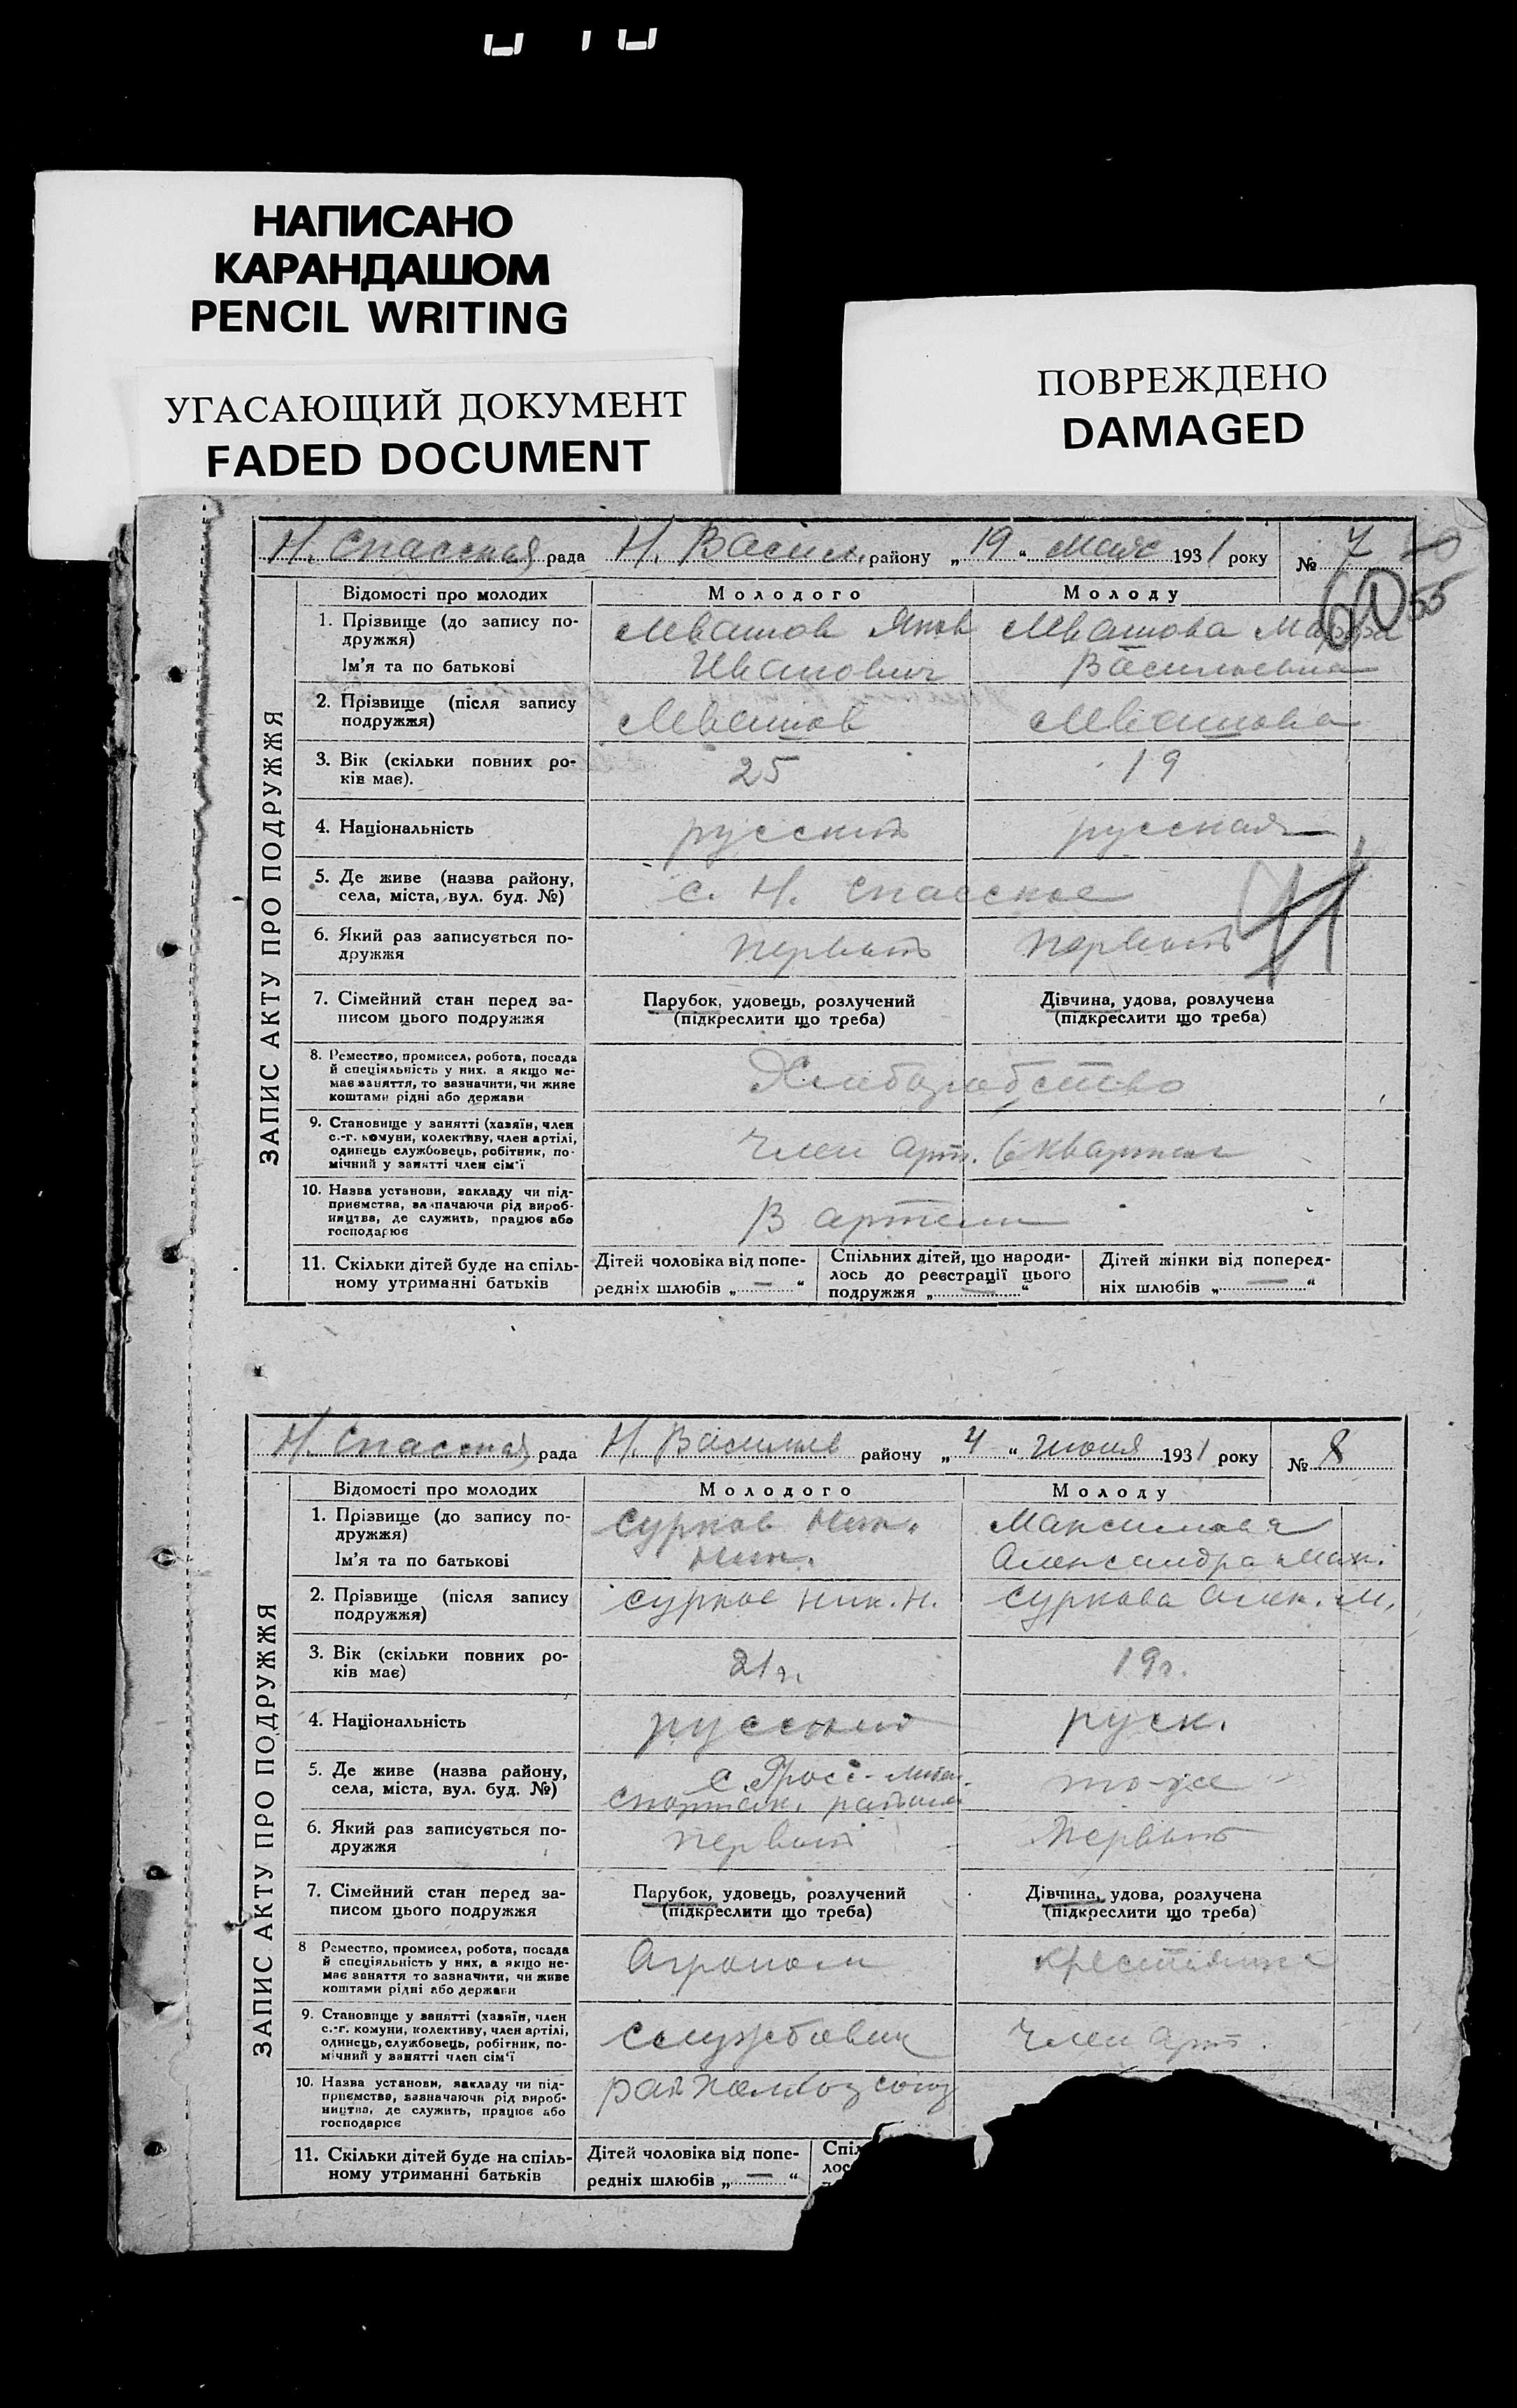 НАПИСАНО
КАРАНДАШОМ
PENCIL WRITING
УГАСАЮЩИЙ ДОКУМЕНТ
FADED DOCUMENT
ПОВРЕЖДЕНО
DAMAGED
Н. Спасская рада Н. Васил. району „19“ мая 1931 року № 7
55
ЗАПИС АКТУ ПРО ПОДРУЖЖЯ
Відомості про молодих Молодого Молоду
1. Прізвище (до запису по-
дружжя)
Ім'я та по батькові
Ивашов Яков Ивашова Марфа
Иванович Васильевна
2. Прізвище (після запису
подружжя)
Ивашов Ивашова
3. Вік (скільки повних ро-
ків має).
25 19
4. Національність русский русская
5. Де живе (назва району,
села, міста, вул. буд. №)
с. Н. Спасское
6. Який раз записується по-
дружжя
первый первый
7. Сімейний стан перед за-
писом цього подружжя
Парубок, удовець, розлучений
(підкреслити що треба)
Дівчина, удова, розлучена
(підкреслити що треба)
8. Ремество, промисел, робота, посада
й спеціяльність у них, а якщо не-
має заняття, то зазначити, чи живе
коштами рідні або держави
Хлеборобство
9. Становище у занятті (хазяїн, член
с.-г. комуни, колективу, член артілі,
одинець службовець, робітник, по-
мічний у занятті член сім'ї
Член арт.
10. Назва установи, закладу чи під-
приємства, зазначаючи рід вироб-
ництва, де служить, працює або
господарює
В артели
11. Скільки дітей буде на спіль-
ному утриманні батьків
Дітей чоловіка від попе-
редніх шлюбів „—“
Спільних дітей, що народи-
лось до реєстрації цього
подружжя „—“
Дітей жінки від поперед-
ніх шлюбів „—“
Н. Спасская рада Н. Васильев району „4“ июня 1931 року № 8
ЗАПИС АКТУ ПРО ПОДРУЖЖЯ
Відомості про молодих Молодого Молоду
1. Прізвище (до запису по-
дружжя)
Ім'я та по батькові
Сурков Ник. Максимова
Ник. Александра Мак.
2. Прізвище (після запису
подружжя)
Сурков Ник. Н. Суркова Алек. М.
3. Вік (скільки повних ро-
ків має)
21 г. 19 г.
4. Національність русский руск.
5. Де живе (назва району,
села, міста, вул. буд. №)
с. Гросс- то-же
района
6. Який раз записується по-
дружжя
первый Первый
7. Сімейний стан перед за-
писом цього подружжя
Парубок, удовець, розлучений
(підкреслити що треба)
Дівчина, удова, розлучена
(підкреслити що треба)
8 Ремество, промисел, робота, посада
й спеціяльність у них, а якщо не-
має заняття то зазначити, чи живе
коштами рідні або держави
Агроном крестьянка
9. Становище у занятті (хазяїн, член
с.-г. комуни, колективу, член артілі,
одинець, службовець, робітник, по-
мічний у занятті член сім'ї
служботвець Член арт.
10. Назва установи, закладу чи під-
приємства, зазначаючи рід вироб-
ництва, де служить, працює або
господарює
11. Скільки дітей буде на спіль-
ному утриманні батьків
Дітей чоловіка від попе-
редніх шлюбів „—“
Спіл
лос